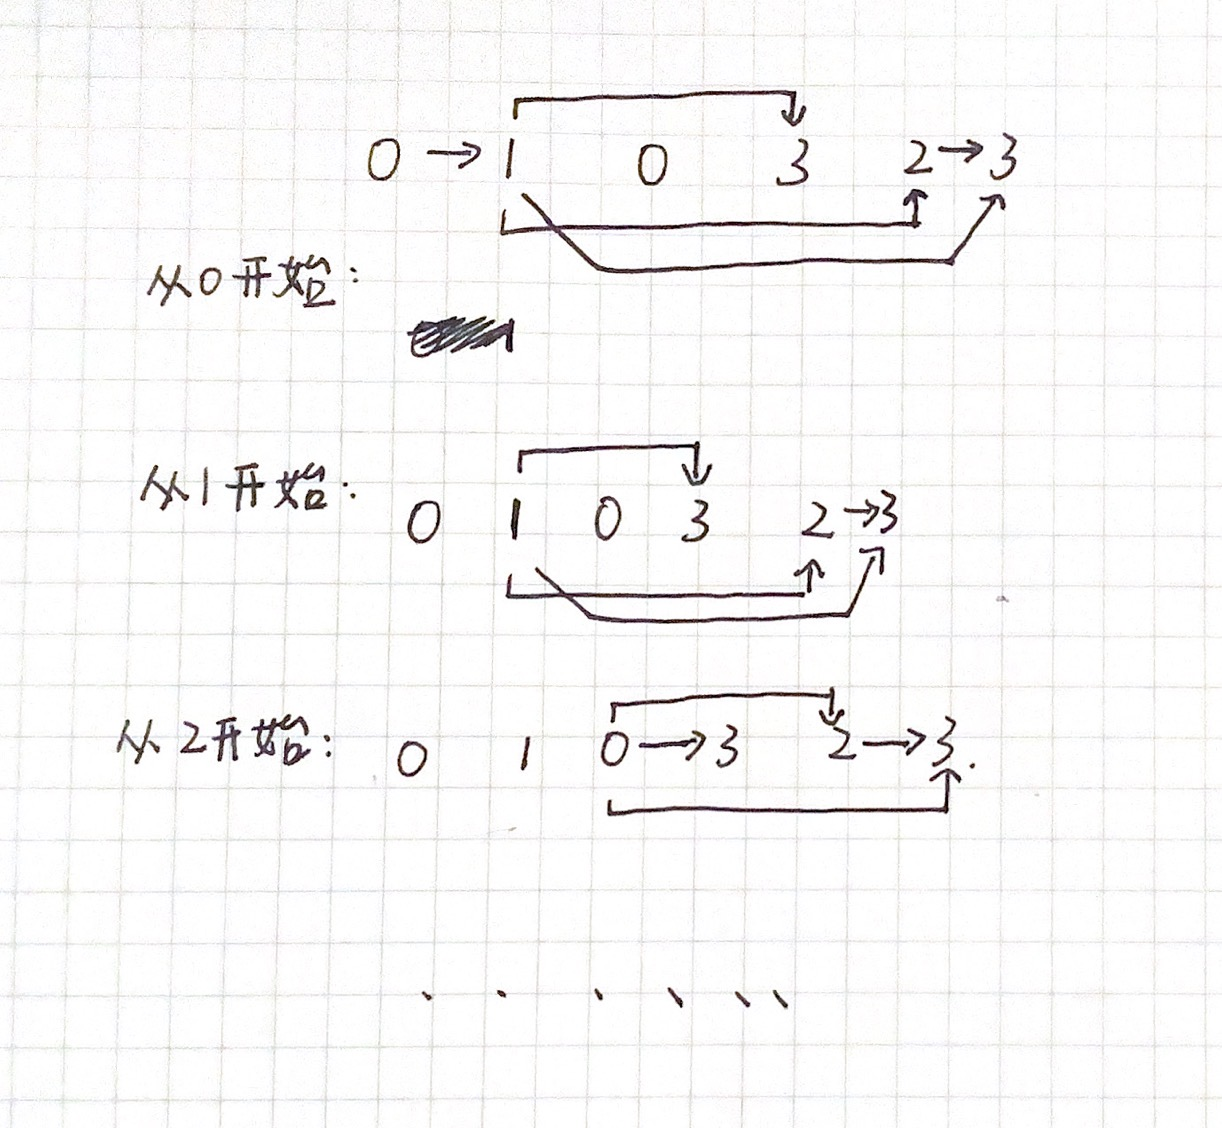 0 → 1 0 3 2 → 3
从0开始:
从1开始:
0 1 0 3 2 → 3
从2开始: 0 1 0 → 3 2 → 3.
......